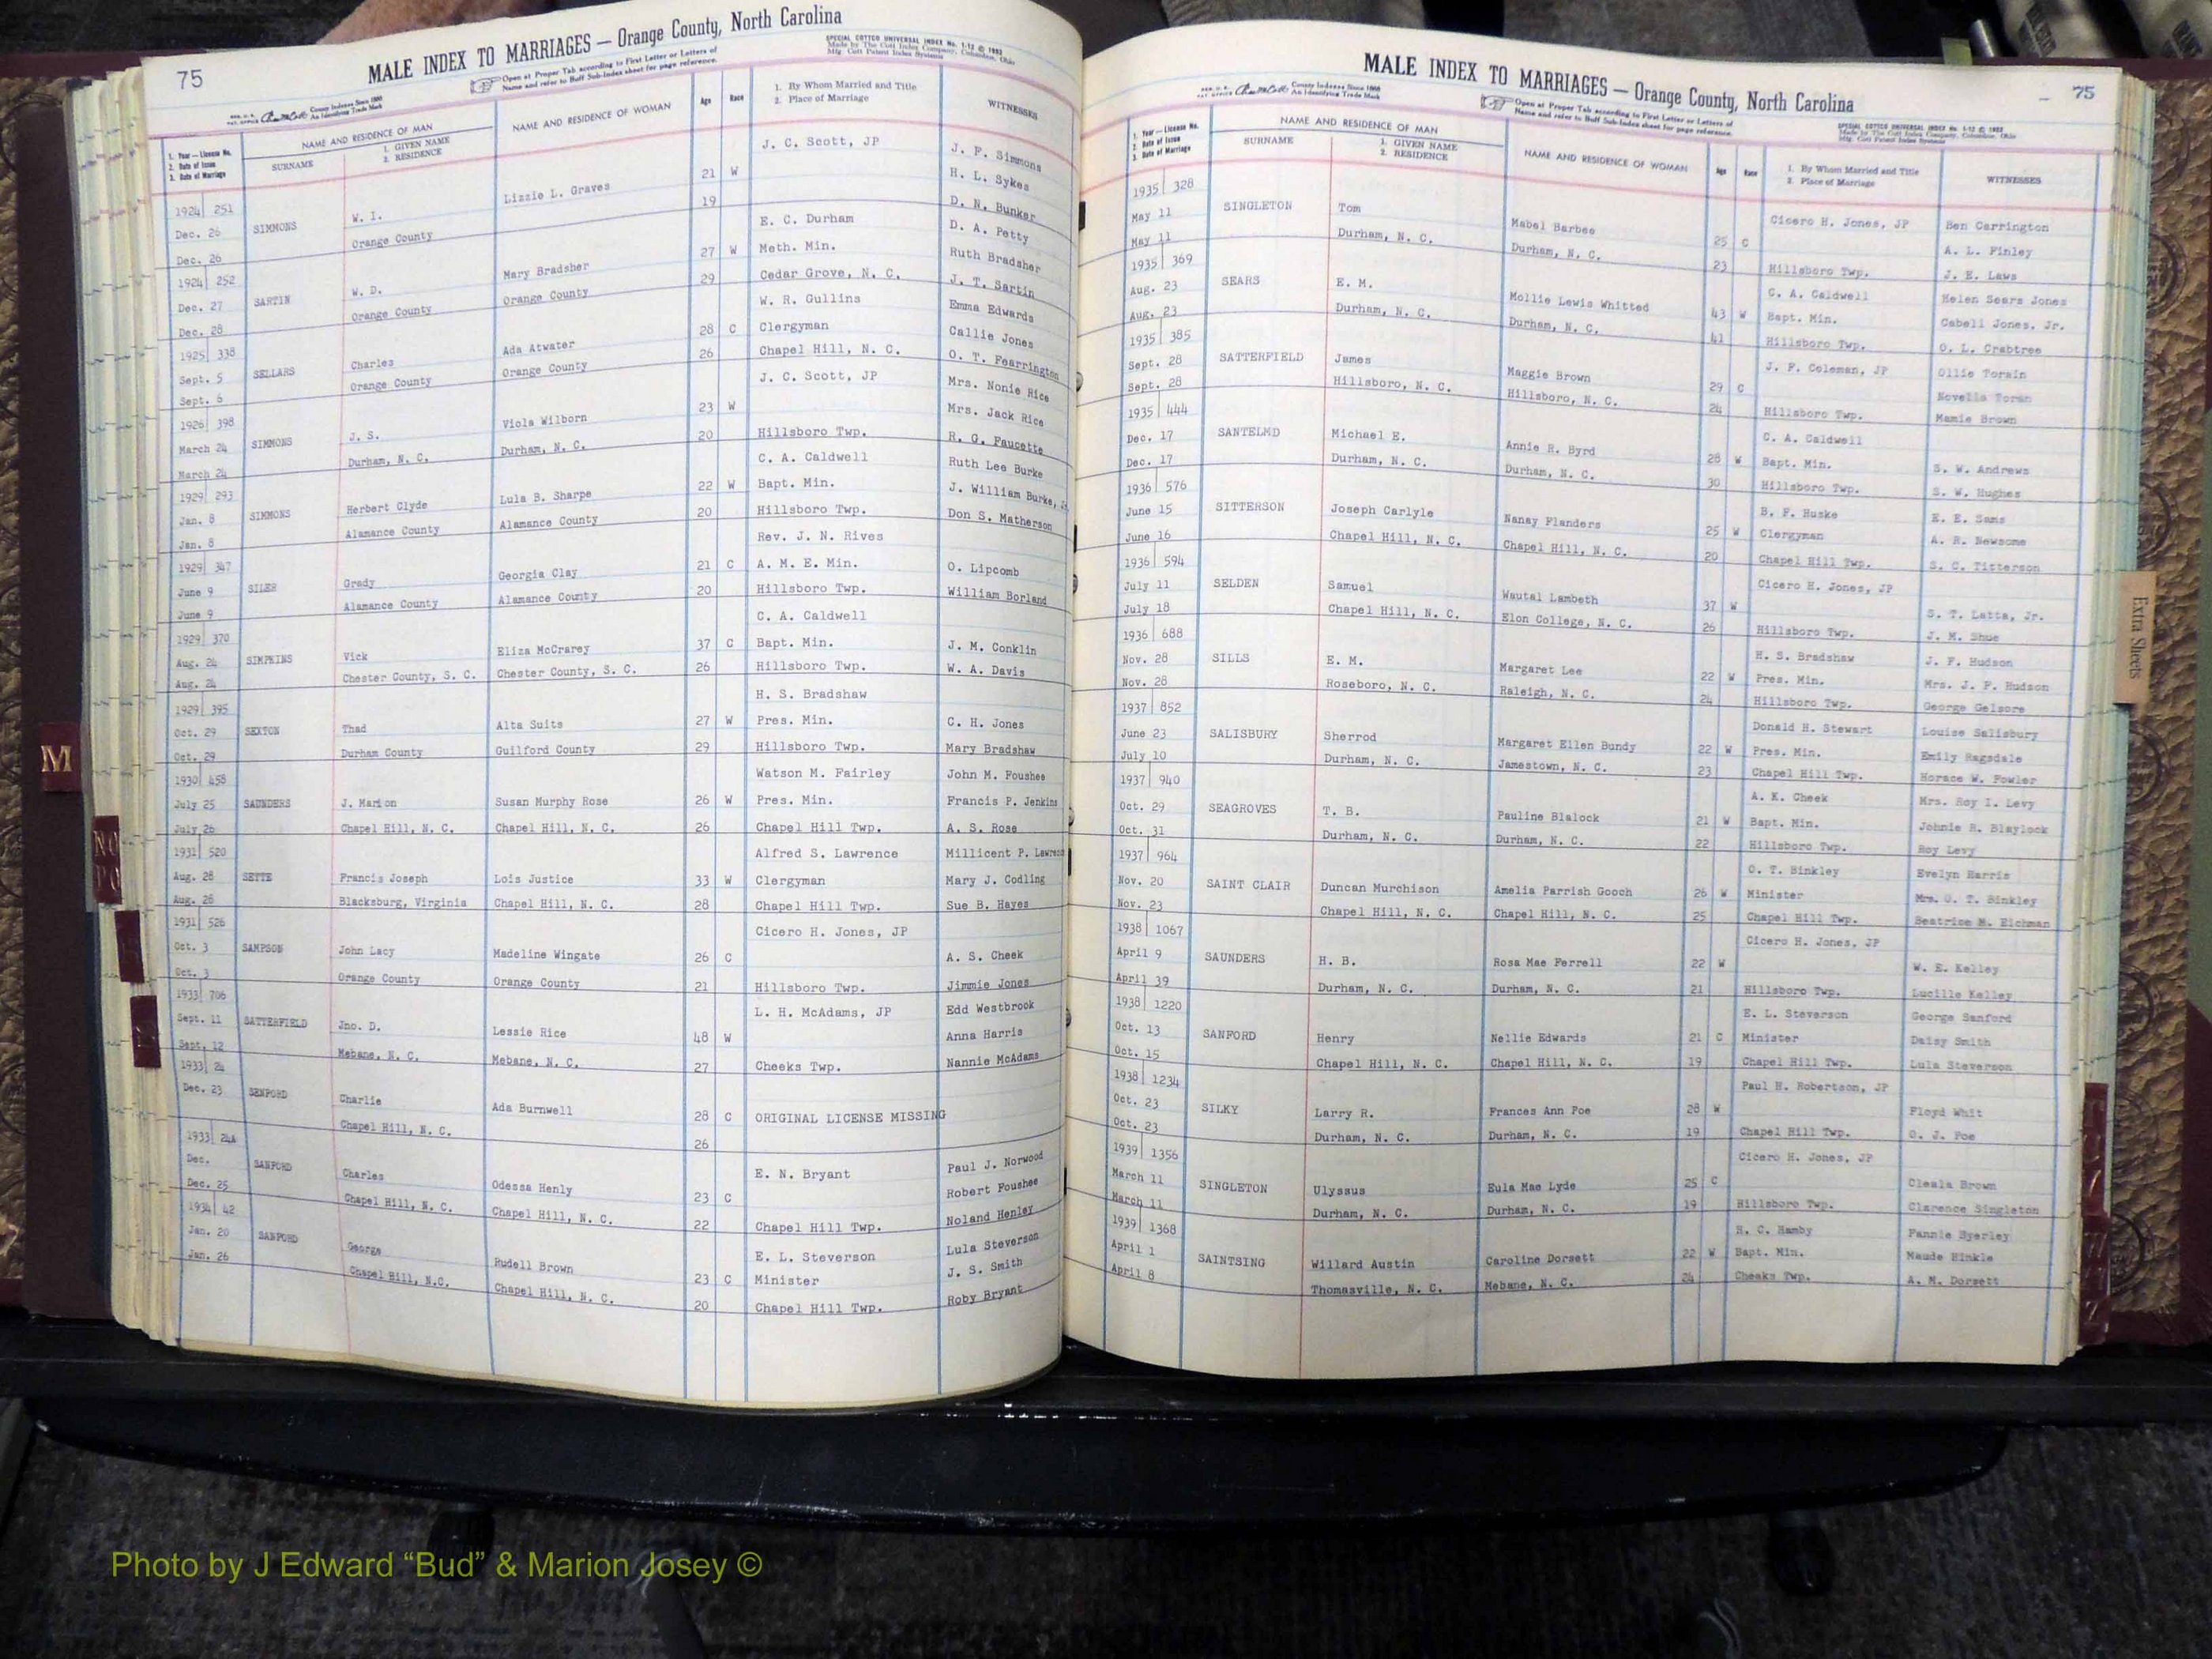 75
MALE INDEX TO MARRIAGES — Orange County, North Carolina
Open at Proper Tab according to First Letter or Letters of
Name and refer to Buff Sub-Index sheet for page reference.
SPECIAL COTTCO UNIVERSAL INDEX No. 1-12 © 1992
Made by The Cott Index Company, Columbus, Ohio
Mfg. Cott Patent Index Systems
County Indexes Since 1888
An Identifying Trade Mark
1. Year — License No.
2. Date of Issue
3. Date of Marriage
NAME AND RESIDENCE OF MAN
SURNAME
1. GIVEN NAME
2. RESIDENCE
NAME AND RESIDENCE OF WOMAN
Age
Race
1. By Whom Married and Title
2. Place of Marriage
WITNESSES
J. C. Scott, JP J. F. Simmons
1924 251 Lizzie L. Graves 21 W H. L. Sykes
Dec. 26 SIMMONS W. I. 19 D. N. Bunker
Dec. 26 Orange County
E. C. Durham D. A. Petty
1924 252 Mary Bradsher 27 W Meth. Min. Ruth Bradsher
Dec. 27 SARTIN W. D. Orange County 29 Cedar Grove, N. C. J. T. Sartin
Dec. 28 Orange County
W. R. Gullins Emma Edwards
1925 338 Ada Atwater 28 C Clergyman Callie Jones
Sept. 5 SELLARS Charles Orange County 26 Chapel Hill, N. C. O. T. Fearrington
Sept. 6 Orange County
J. C. Scott, JP Mrs. Nonie Rice
1926 398 Viola Wilborn 23 W Mrs. Jack Rice
March 24 SIMMONS J. S. Durham, N. C. 20 Hillsboro Twp. R. G. Faucette
March 24 Durham, N. C.
C. A. Caldwell Ruth Lee Burke
1929 293 Lula B. Sharpe 22 W Bapt. Min. J. William Burke, Jr.
Jan. 8 SIMMONS Herbert Clyde Alamance County 20 Hillsboro Twp. Don S. Matherson
Jan. 8 Alamance County
Rev. J. N. Rives
1929 347 Georgia Clay 21 C A. M. E. Min. O. Lipcomb
June 9 SILER Grady Alamance County 20 Hillsboro Twp. William Borland
June 9 Alamance County
C. A. Caldwell
1929 370 Eliza McCrarey 37 C Bapt. Min. J. M. Conklin
Aug. 24 SIMPKINS Vick Chester County, S. C. 26 Hillsboro Twp. W. A. Davis
Aug. 24 Chester County, S. C.
H. S. Bradshaw
1929 395 Alta Suits 27 W Pres. Min. C. H. Jones
Oct. 29 SEXTON Thad Guilford County 29 Hillsboro Twp. Mary Bradshaw
Oct. 29 Durham County
1930 458 Watson M. Fairley John M. Foushee
July 25 SAUNDERS J. Marion Susan Murphy Rose 26 W Pres. Min. Francis P. Jenkins
July 26 Chapel Hill, N. C. Chapel Hill, N. C. 26 Chapel Hill Twp. A. S. Rose
1931 520 Alfred S. Lawrence Millicent P. Lawrence
Aug. 28 SETTE Francis Joseph Lois Justice 33 W Clergyman Mary J. Codling
Aug. 28 Blacksburg, Virginia Chapel Hill, N. C. 28 Chapel Hill Twp. Sue B. Hayes
1931 526 Cicero H. Jones, JP
Oct. 3 SAMPSON John Lacy Madeline Wingate 26 C A. S. Cheek
Oct. 3 Orange County Orange County 21 Hillsboro Twp. Jimmie Jones
1933 706 L. H. McAdams, JP Edd Westbrook
Sept. 11 SATTERFIELD Jno. D. Lessie Rice 48 W Anna Harris
Sept. 12 Mebane, N. C. Mebane, N. C. 27 Cheeks Twp. Nannie McAdams
1933 24
Dec. 23 SENFORD Charlie Ada Burnwell 28 C ORIGINAL LICENSE MISSING
Chapel Hill, N. C. 26
1933 24A
Dec. SANFORD Charles Odessa Henly E. N. Bryant Paul J. Norwood
Dec. 25 23 C Robert Foushee
Chapel Hill, N. C. Chapel Hill, N. C. 22 Chapel Hill Twp. Noland Henley
1934 42 E. L. Steverson Lula Steverson
Jan. 20 SANFORD George Rudell Brown 23 C Minister J. S. Smith
Jan. 26 Chapel Hill, N.C. Chapel Hill, N. C. 20 Chapel Hill Twp. Roby Bryant
MALE INDEX TO MARRIAGES — Orange County, North Carolina
75
County Indexes Since 1888
An Identifying Trade Mark
Open at Proper Tab according to First Letter or Letters of
Name and refer to Buff Sub-Index sheet for page reference.
SPECIAL COTTCO UNIVERSAL INDEX No. 1-12 © 1992
Made by The Cott Index Company, Columbus, Ohio
Mfg. Cott Patent Index Systems
1. Year — License No.
2. Date of Issue
3. Date of Marriage
NAME AND RESIDENCE OF MAN
SURNAME
1. GIVEN NAME
2. RESIDENCE
NAME AND RESIDENCE OF WOMAN
Age
Race
1. By Whom Married and Title
2. Place of Marriage
WITNESSES
1935 328 Cicero H. Jones, JP Ben Carrington
May 11 SINGLETON Tom Mabel Barbee 25 C A. L. Finley
May 11 Durham, N. C. Durham, N. C. 23 Hillsboro Twp. J. E. Laws
1935 369 C. A. Caldwell Helen Sears Jones
Aug. 23 SEARS E. M. Mollie Lewis Whitted 43 W Bapt. Min. Cabell Jones, Jr.
Aug. 23 Durham, N. C. Durham, N. C. 41 Hillsboro Twp. O. L. Crabtree
1935 385 J. F. Coleman, JP Ollie Torain
Sept. 28 SATTERFIELD James Maggie Brown 29 C Novella Toran
Sept. 28 Hillsboro, N. C. Hillsboro, N. C. 24 Hillsboro Twp. Mamie Brown
1935 444 C. A. Caldwell
Dec. 17 SANTELMD Michael E. Annie R. Byrd 28 W Bapt. Min. S. W. Andrews
Dec. 17 Durham, N. C. Durham, N. C. 30 Hillsboro Twp. S. W. Hughes
1936 576 B. F. Huske E. E. Sams
June 15 SITTERSON Joseph Carlyle Nanay Flanders 25 W Clergyman A. R. Newsome
June 16 Chapel Hill, N. C. Chapel Hill, N. C. 20 Chapel Hill Twp. S. C. Titterson
1936 594 Cicero H. Jones, JP
July 11 SELDEN Samuel Wautal Lambeth 37 W S. T. Latta, Jr.
July 18 Chapel Hill, N. C. Elon College, N. C. 26 Hillsboro Twp. J. M. Shoe
1936 688 H. S. Bradshaw J. F. Hudson
Nov. 28 SILLS E. M. Margaret Lee 22 W Pres. Min. Mrs. J. F. Hudson
Nov. 28 Roseboro, N. C. Raleigh, N. C. 24 Hillsboro Twp. George Gelsore
1937 852 Donald H. Stewart Louise Salisbury
June 23 SALISBURY Sherrod Margaret Ellen Bundy 22 W Pres. Min. Emily Ragsdale
July 10 Durham, N. C. Jamestown, N. C. 23 Chapel Hill Twp. Horace W. Fowler
1937 940 A. K. Cheek Mrs. Roy I. Levy
Oct. 29 SEAGROVES T. B. Pauline Blalock 21 W Bapt. Min. Johnie R. Blaylock
Oct. 31 Durham, N. C. Durham, N. C. 22 Hillsboro Twp. Roy Levy
1937 964 O. T. Binkley Evelyn Harris
Nov. 20 SAINT CLAIR Duncan Murchison Amelia Parrish Gooch 26 W Minister Mrs. O. T. Binkley
Nov. 23 Chapel Hill, N. C. Chapel Hill, N. C. 25 Chapel Hill Twp. Beatrice M. Eichman
1938 1067 Cicero H. Jones, JP
April 9 SAUNDERS H. B. Rosa Mae Ferrell 22 W W. E. Kelley
April 39 Durham, N. C. Durham, N. C. 21 Hillsboro Twp. Lucille Kelley
1938 1220 E. L. Steverson George Sanford
Oct. 13 SANFORD Henry Nellie Edwards 21 C Minister Daisy Smith
Oct. 15 Chapel Hill, N. C. Chapel Hill, N. C. 19 Chapel Hill Twp. Lula Steverson
1938 1234 Paul H. Robertson, JP
Oct. 23 SILKY Larry R. Frances Ann Poe 28 W Floyd Whit
Oct. 23 Durham, N. C. Durham, N. C. 19 Chapel Hill Twp. O. J. Poe
1939 1356 Cicero H. Jones, JP
March 11 SINGLETON Ulyssus Eula Mae Lyde 25 C Cleala Brown
March 11 Durham, N. C. Durham, N. C. 19 Hillsboro Twp. Clarence Singleton
1939 1368 H. C. Hamby Fannie Byerley
April 1 SAINTSING Willard Austin Caroline Dorsett 22 W Bapt. Min. Maude Hinkle
April 8 Thomasville, N. C. Mebane, N. C. 24 Cheeks Twp. A. M. Dorsett
Extra Sheets
M
NO
PQ
Photo by J Edward “Bud” & Marion Josey ©